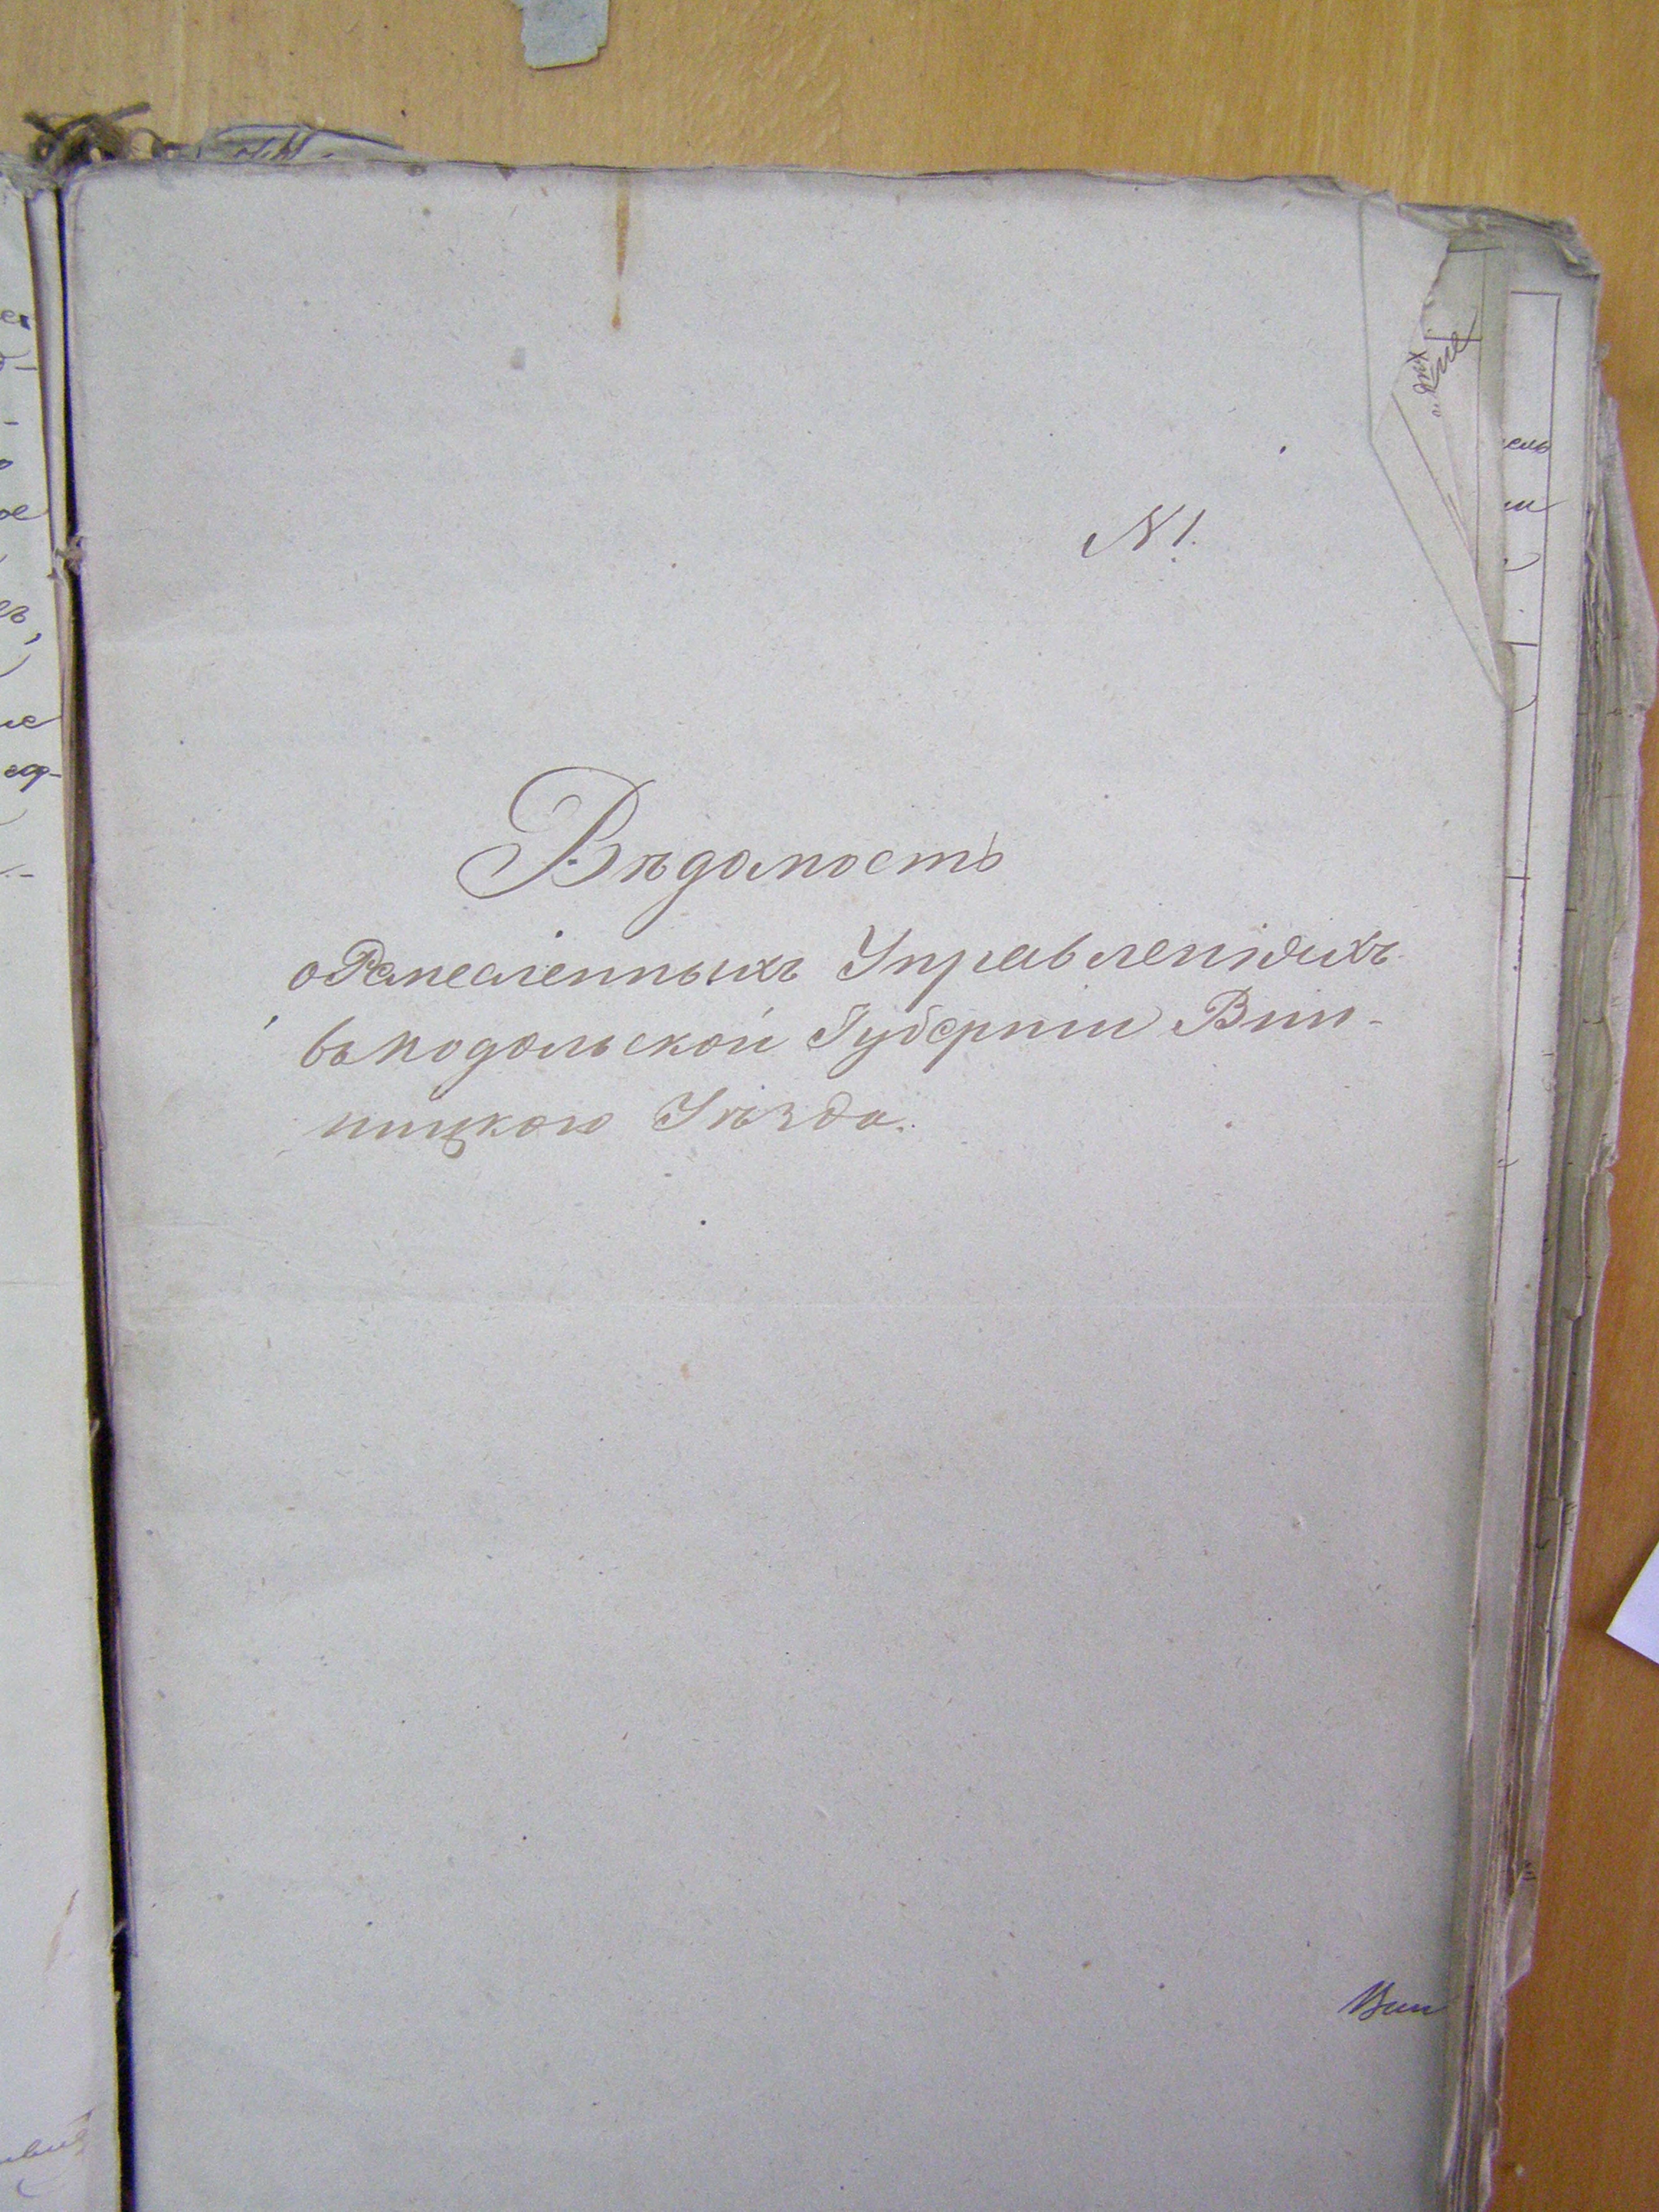 N 1.
Вѣдомость
о Ремесленныхъ Управленіяхъ
въ Подольской Губерніи Вин-
ницкого Уѣзда.
Вин